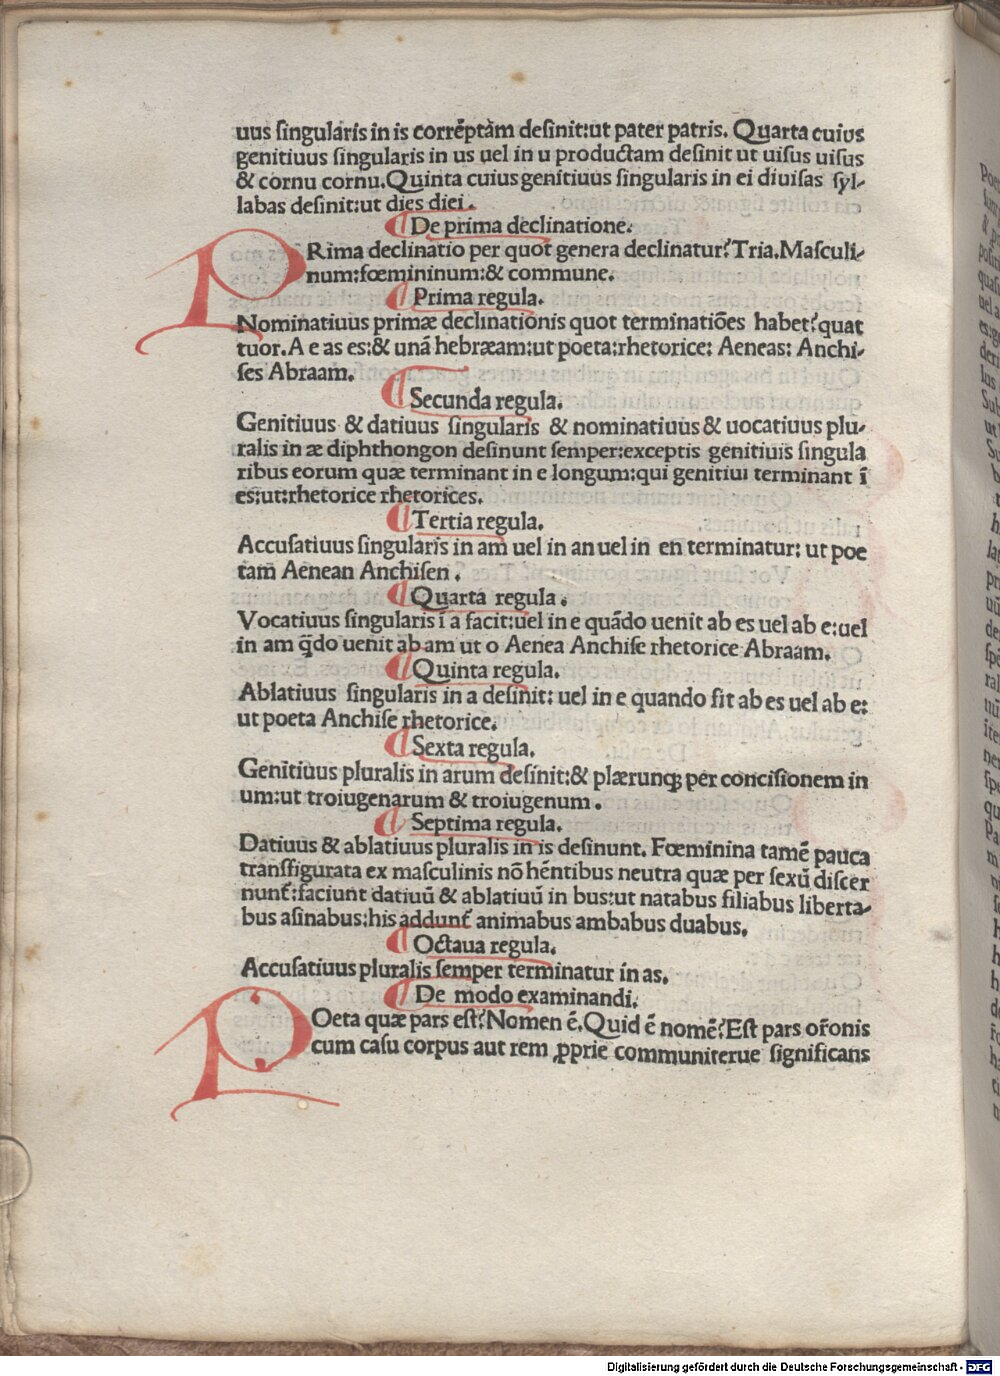 uus ſingularis in is corrēptam deſinit:ut pater patris. Quarta cuius
genitiuus ſingularis in us uel in u productam deſinit ut uiſus uiſus
& cornu cornu.Quinta cuius genitiuus ſingularis in ei diuiſas ſyl-
labas deſinit:ut dies diei.
¶De prima declinatione.
PRima declinatio per quot genera declinatur?Tria.Maſculi-
num:fœmininum:& commune.
¶Prima regula.
Nominatiuus primæ declinationis quot terminatiões habet?quat
tuor.A e as es:& unā hebræam:ut poeta:rhetorice: Aeneas: Anchi-
ſes Abraam.
¶Secunda regula.
Genitiuus & datiuus ſingularis & nominatiuus & uocatiuus plu-
ralis in æ diphthongon deſinunt ſemper:exceptis genitiuis ſingula
ribus eorum quæ terminant in e longum:qui genitiui terminant ī
es:ut:rhetorice rhetorices.
¶Tertia regula.
Accuſatiuus ſingularis in am uel in an uel in en terminatur: ut poe
tam Aenean Anchiſen.
¶Quarta regula.
Vocatiuus ſingularis ī a facit:uel in e quādo uenit ab es uel ab e:uel
in am q̄do uenit ab am ut o Aenea Anchiſe rhetorice Abraam.
¶Quinta regula.
Ablatiuus ſingularis in a deſinit: uel in e quando fit ab es uel ab e:
ut poeta Anchiſe rhetorice.
¶Sexta regula.
Genitiuus pluralis in arum deſinit:& plærunqꝫ per conciſionem in
um:ut troiugenarum & troiugenum.
¶Septima regula.
Datiuus & ablatiuus pluralis in is deſinunt. Fœminina tamē pauca
tranſfigurata ex maſculinis nō hēntibus neutra quæ per ſexū diſcer
nunt̄:faciunt datiuū & ablatiuū in bus:ut natabus filiabus liberta-
bus aſinabus:his addunt̄ animabus ambabus duabus.
¶Octaua regula.
Accuſatiuus pluralis ſemper terminatur in as.
¶De modo examinandi.
POeta quæ pars eſt?Nomen ē.Quid ē nomē?Eſt pars or̄onis
cum caſu corpus aut rem ꝓprie communiterue ſignificans
Digitalisierung gefördert durch die Deutsche Forschungsgemeinschaft - DFG